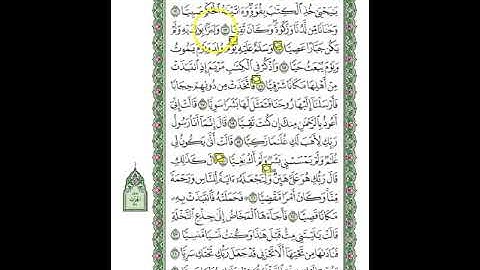 يَـٰيَحْيَىٰ خُذِ ٱلْكِتَـٰبَ بِقُوَّةٍ ۖ وَءَاتَيْنَـٰهُ ٱلْحُكْمَ صَبِيًّا ١٢
وَحَنَانًا مِّن لَّدُنَّا وَزَكَوٰةً ۖ وَكَانَ تَقِيًّا ١٣ وَبَرًّۢا بِوَٰلِدَيْهِ وَلَمْ
يَكُن جَبَّارًا عَصِيًّا ١٤ وَسَلَـٰمٌ عَلَيْهِ يَوْمَ وُلِدَ وَيَوْمَ يَمُوتُ
وَيَوْمَ يُبْعَثُ حَيًّا ١٥ وَٱذْكُرْ فِى ٱلْكِتَـٰبِ مَرْيَمَ إِذِ ٱنتَبَذَتْ
مِنْ أَهْلِهَا مَكَانًا شَرْقِيًّا ١٦ فَٱتَّخَذَتْ مِن دُونِهِمْ حِجَابًا
فَأَرْسَلْنَآ إِلَيْهَا رُوحَنَا فَتَمَثَّلَ لَهَا بَشَرًا سَوِيًّا ١٧ قَالَتْ إِنِّىٓ
أَعُوذُ بِٱلرَّحْمَـٰنِ مِنكَ إِن كُنتَ تَقِيًّا ١٨ قَالَ إِنَّمَآ أَنَا۠ رَسُولُ
رَبِّكِ لِأَهَبَ لَكِ غُلَـٰمًا زَكِيًّا ١٩ قَالَتْ أَنَّىٰ يَكُونُ لِى
غُلَـٰمٌ وَلَمْ يَمْسَسْنِى بَشَرٌ وَلَمْ أَكُ بَغِيًّا ٢٠ قَالَ كَذَٰلِكِ
قَالَ رَبُّكِ هُوَ عَلَىَّ هَيِّنٌ ۖ وَلِنَجْعَلَهُۥٓ ءَايَةً لِّلنَّاسِ وَرَحْمَةً
مِّنَّا ۚ وَكَانَ أَمْرًا مَّقْضِيًّا ٢١ فَحَمَلَتْهُ فَٱنتَبَذَتْ بِهِۦ
مَكَانًا قَصِيًّا ٢٢ فَأَجَآءَهَا ٱلْمَخَاضُ إِلَىٰ جِذْعِ ٱلنَّخْلَةِ
قَالَتْ يَـٰلَيْتَنِى مِتُّ قَبْلَ هَـٰذَا وَكُنتُ نَسْيًا مَّنسِيًّا ٢٣
فَنَادَىٰهَا مِن تَحْتِهَآ أَلَّا تَحْزَنِى قَدْ جَعَلَ رَبُّكِ تَحْتَكِ سَرِيًّا ٢٤